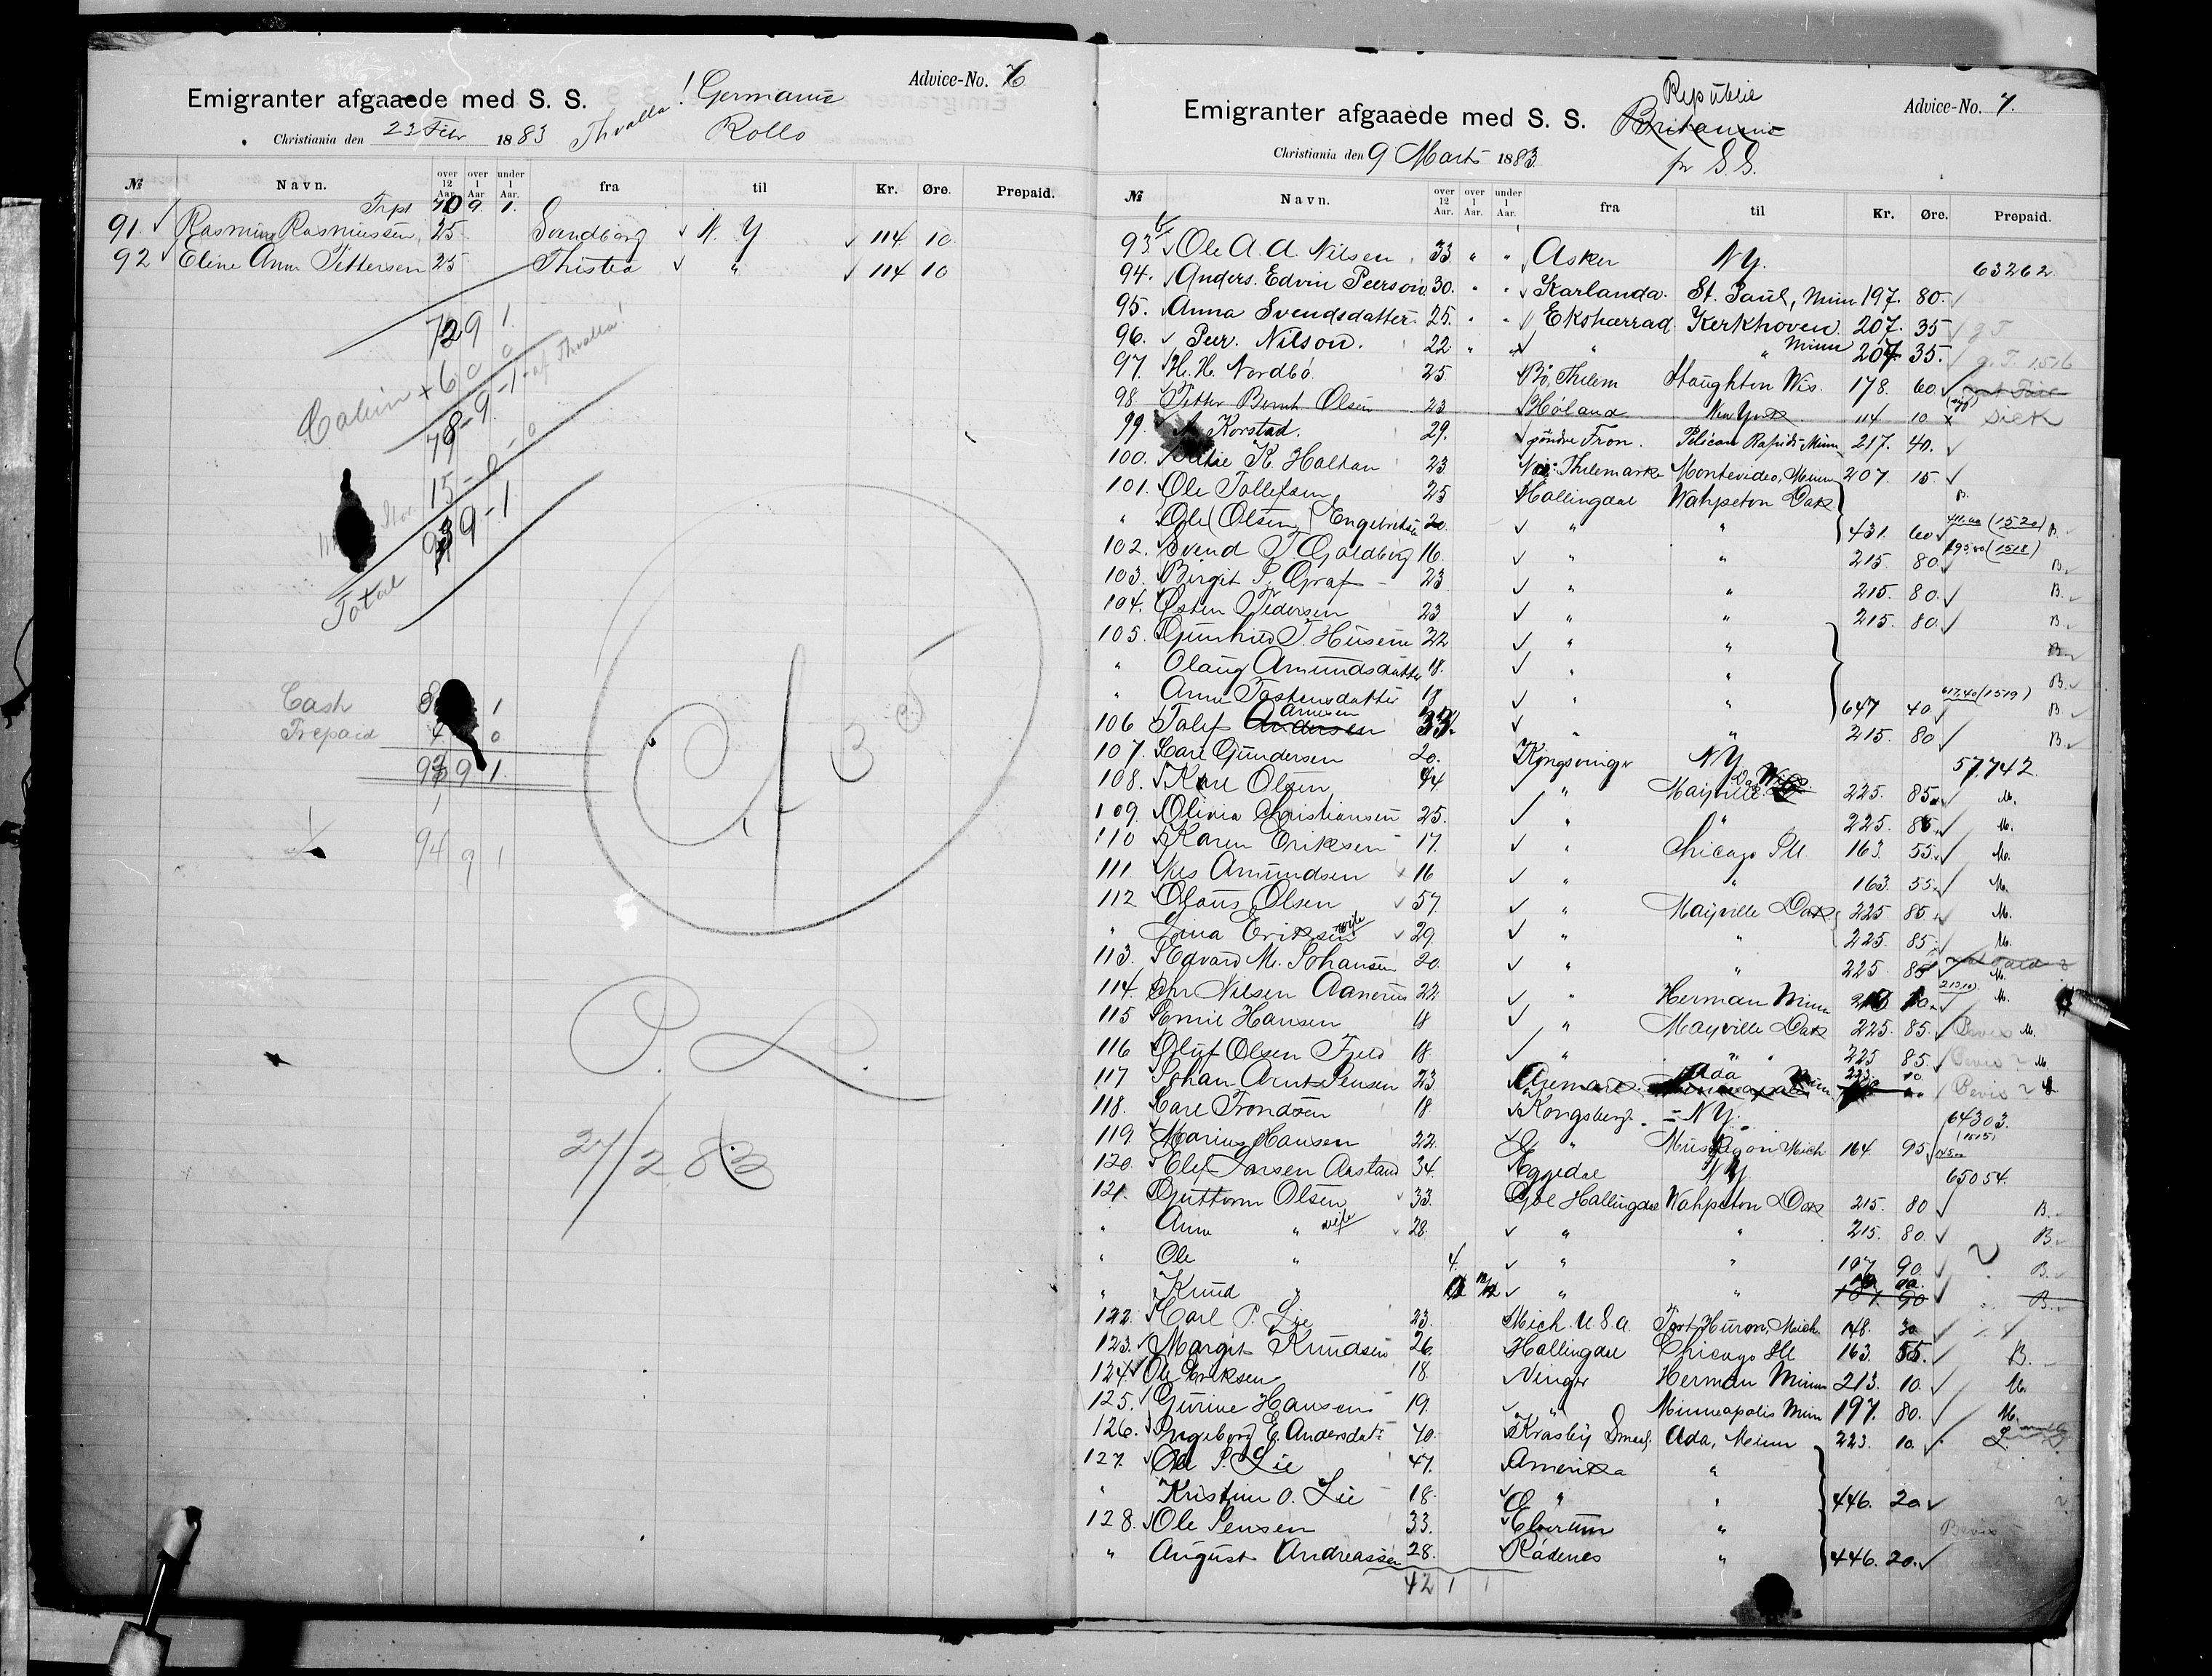 Advice-No. 6
Emigranter afgaaede med S. S. Thvalla! Germanic
Christiania den 23 Febr 1883 Rollo
№ Navn. over 12 Aar. over 1 Aar under 1 Aar. fra til Kr. Øre. Prepaid.
Trpt 70 9. 1.
91. Rasmine Rasmussen 25 Svendborg N. Y 114 10
92 Eline Ann Pettersen 25 Thisted " 114 10
72 9 1.
Cabin + 6 0 0
78-9-1- af Thvalla!
78-9.
15-0-0
93 9-1.
Total
Cash 8 1
Prepaid 4 0
93 9 1.
1
94 9 1
O. L.
27/2 83
Republic
Advice-No. 7.
Emigranter afgaaede med S. S. Britannic
Christiania den 9 Marts 1883. pr S. S.
№ Navn. over 12 Aar. over 1 Aar. under 1 Aar. fra til Kr. Øre. Prepaid.
93 Ole A. A. Nilsen 33 " " Asker NY. 63262
94. Anders. Edvin Peerson 30. " " Karlanda. St. Paul, Minn 197. 80.
95. Anna Svendsdatter 25. " " Ekshærrad Kerkhoven 207. 35 g T
96. Peer. Nilson. 22 " " " " Minn 207. 35. g. T. 1516
97. H. H. Nordbö 25. Bö, Thelem Stoughton Wis. 178. 60.
98. Petter Bernt Olsen 23 Höland New York 114 10 x sick
99. Korstad. 29. söndre Fron. Pelican Rapids Minn 217. 40.
100. K. Haltan 23 Thelemarke Montevideo, Minn 207 15.
101. Ole Tollefsen 25 Hallingdal Wahpeton Dak
" Ole (Olsen) Engebretsen 20. " " 431. 60 (1520) B.
102. Svend T. Goldberg 16. " " 215. 80 (1518) B.
103. Birgit P. Graf - 23 " " 215. 80. B.
104. Osten Pedersen 23 " " 215. 80. B.
105. Gunhild T. Husene 22 " " B.
" Olaug Amundsdatter 18. " " B.
" Anne Tostensdatter 18 " " 647 40 617.40 (1519) B
106 Tolef Andersen Arnesen " " 215. 80 B.
107. Carl Gundersen 20. Kongsvinger N Y. 57,742.
108. Kari Olsen 44 " Mayville Dak 225. 85. M.
109. Olivia Christiansen 25. " " 225. 85. M.
110 Karen Eriksen 17. " Chicago Ill. 163. 55. M.
111. Nils Amundsen 16 " " 163. 55. M.
112 Olaus Olsen 57. " Mayville Dak 225 85. M.
" Lina Eriksen wife 29. " " 225. 85. M.
113. Edvard M. Johansen 20. " " 225 85 M.
114. Chr Nilsen Aanerud 22 " Herman Minn 213.10. M.
115 Emil Hansen 18 " Mayville Dak 225. 85. Bevis M.
116 Oluf Olsen Fjeld 18. " " 225 85. Bevis M.
117 Johan Arnt Jensen 23 Aremark Ada Minn 223. 10. Bevis L
118. Carl Trondsen 18. Kongsberg. = NY. 64303.
119. Marius Hansen 22. " Muskegon Mich 164. 95. (1515)
120. Elef Larsen Aastad 34. Eggedal NY. 65054.
121. Guttorm Olsen 33. Gol Hallingdal Wahpeton Dak 215. 80 B.
" Anne " wife 28. " " 215. 80. B.
" Ole " 4. " " 107. 90. B.
" Knud " " " 107. 90 B.
122. Carl P. Lie 23. Mich. U.S.A. Port Huron, Mich. 148. 30
123. Margit Knudsen 26. Hallingdal Chicago Ill 163. 55. B.
124. Ole Eriksen 18. Vinger Herman Minn 213. 10. M.
125. Gurine Hansen 19. " Minneapolis Minn 197. 80. M.
126. Ingeborg E. Andersdatr 40. Kråsby Smaal. Ada, Minn 223. 10. L.
127. Ole P. Lie 47. Amerika "
" Kristine O. Lie - 18. " " 446. 20.
128. Ole Jensen 33. Elverum " Bevis
" August Andreassen 28. Rådenes " 446. 20.
42 1 1